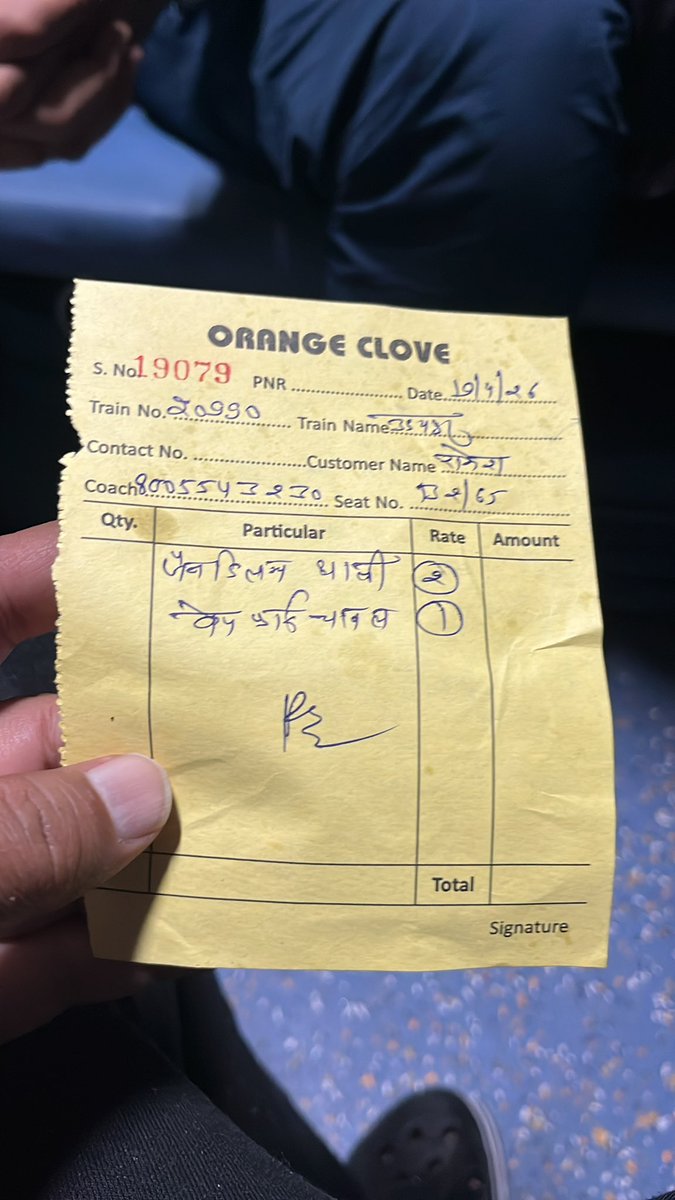 ORANGE CLOVE
S. No 19079 PNR .................... Date 19/4/26
Train No. 20990 Train Name
Contact No. .................... Customer Name
Coach 8005543230 Seat No. B2/65
Qty. Particular Rate Amount
जैन डिलक्स थाली 2
चावल 1
Total
Signature